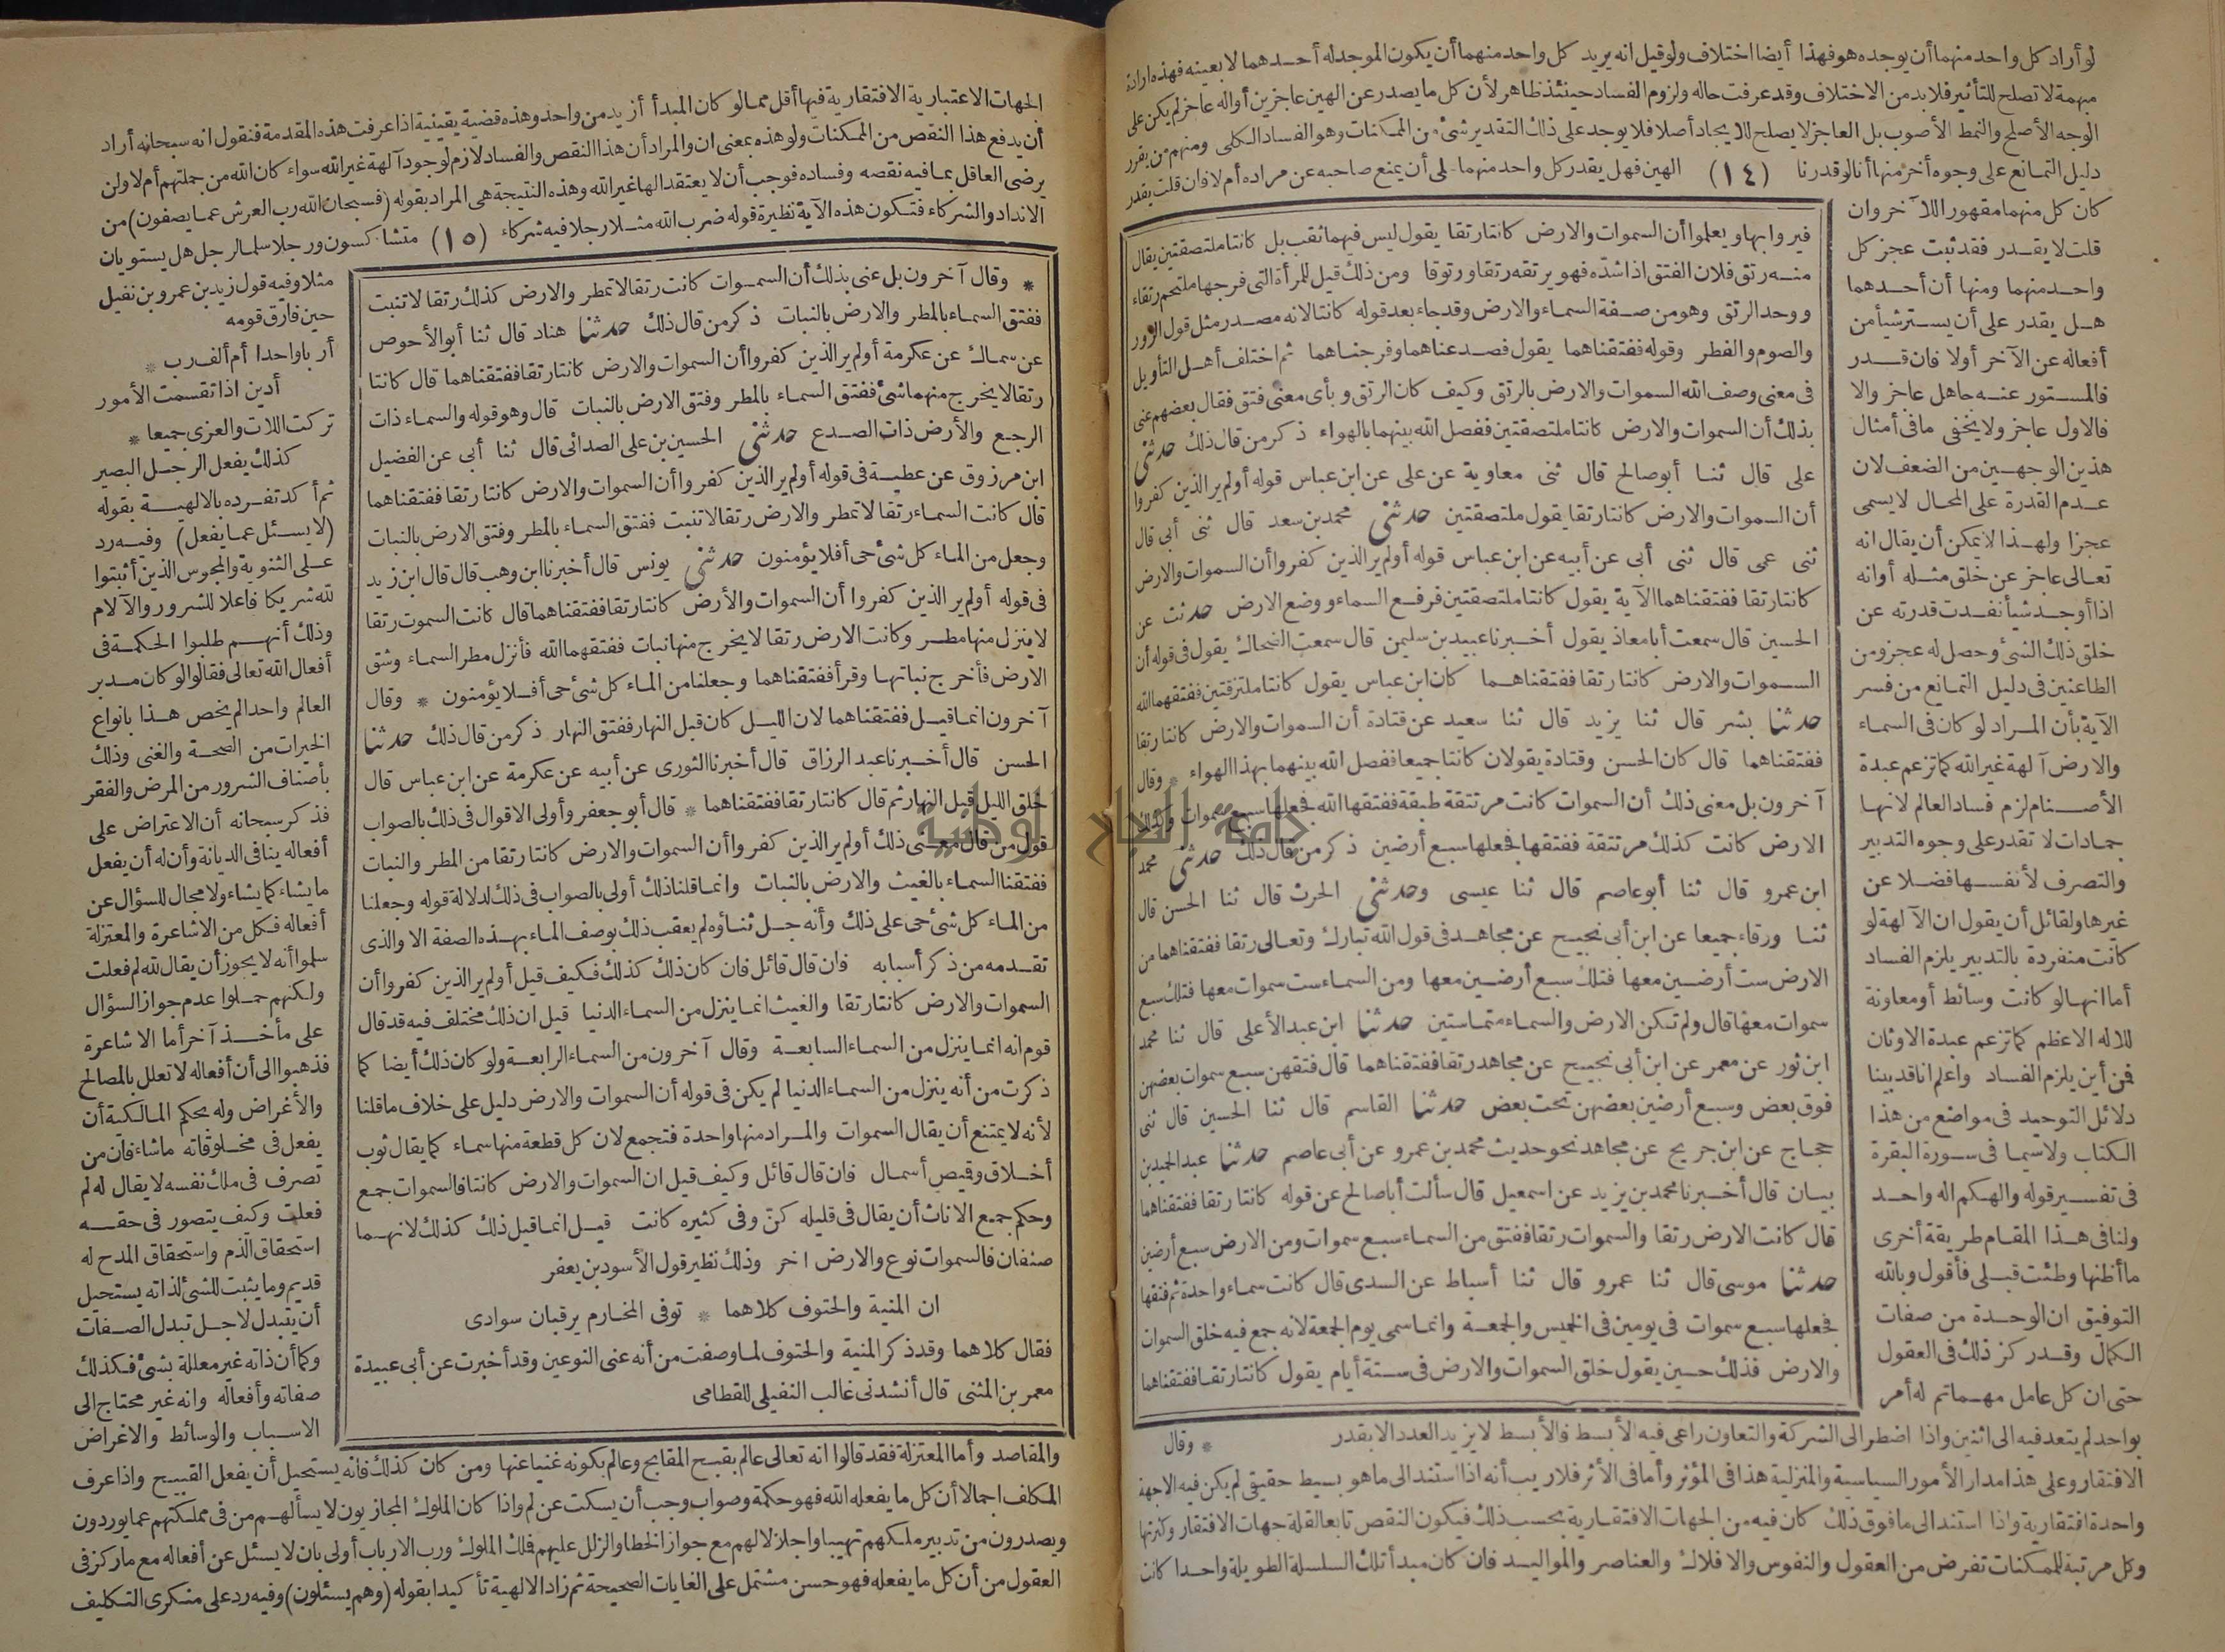 لو أراد كل واحد منهما أن يوجده هو فهذا أيضا اختلاف ولو قيل انه يريد كل واحد منهما أن يكون الموجد له أحدهما لا بعينه فهذه ارادة
مبهمة لا تصلح للتأثير فلا بد من الاختلاف وقد عرفت حاله ولزوم الفساد حينئذ ظاهر لأن كل ما يصدر عن الهين عاجزين أو اله عاجز لم يكن على
الوجه الأصلح والنمط الأصوب بل العاجز لا يصلح للايجاد أصلا فلا يوجد على ذلك التقدير شئ من الممكنات وهو الفساد الكلى ومنهم من يقرر
دليل التمانع على وجوه أخر منها أنا لو قدرنا (١٤) الهين فهل يقدر كل واحد منهما على أن يمنع صاحبه عن مراده أم لا فان قلت يقدر
كان كل منهما مقهورا للآخر وان
قلت لا يقدر فقد ثبت عجز كل
واحد منهما ومنها أن أحدهما
هل يقدر على أن يستر شيأ من
أفعاله عن الآخر أولا فان قدر
فالمستور عنه جاهل عاجز والا
فالاول عاجز ولا يخفى ما فى أمثال
هذين الوجهين من الضعف لان
عدم القدرة على المحال لا يسمى
عجزا ولهذا لا يمكن أن يقال انه
تعالى عاجز عن خلق مثله أو انه
اذا أوجد شيأ نفدت قدرته عن
خلق ذلك الشئ وحصل له عجز ومن
الطاعنين فى دليل التمانع من فسر
الآية بأن المراد لو كان فى السماء
والارض آلهة غير الله كما تزعم عبدة
الأصنام لزم فساد العالم لانها
جمادات لا تقدر على وجوه التدبير
والتصرف لأنفسها فضلا عن
غيرها ولقائل أن يقول ان الآلهة لو
كانت منفردة بالتدبير يلزم الفساد
أما انها لو كانت وسائط أو معاونة
للاله الاعظم كما تزعم عبدة الاوثان
فمن أين يلزم الفساد واعلم انا قد بينا
دلائل التوحيد فى مواضع من هذا
الكتاب ولا سيما فى سورة البقرة
فى تفسير قوله والهكم اله واحد
ولنا فى هذا المقام طريقة أخرى
ما أظنها وطئت قبلى فأقول وبالله
التوفيق ان الوحدة من صفات
الكمال وقد ركز ذلك فى العقول
حتى ان كل عامل مهما تم له أمر
فيروا بها ويعلموا أن السموات والارض كانتا رتقا يقول ليس فيهما ثقب بل كانتا ملتصقتين يقال
منه رتق فلان الفتق اذا شده فهو يرتقه رتقا ورتوقا ومن ذلك قيل للمرأة التى فرجها ملتحم رتقاء
ووحد الرتق وهو من صفة السماء والارض وقد جاء بعد قوله كانتا لانه مصدر مثل قول الزور
والصوم والفطر وقوله ففتقناهما يقول فصدعناهما وفرجناهما ثم اختلف أهل التأويل
فى معنى وصف الله السموات والارض بالرتق وكيف كان الرتق وبأى معنى فتق فقال بعضهم عنى
بذلك أن السموات والارض كانتا ملتصقتين ففصل الله بينهما بالهواء ذكر من قال ذلك حدثنى
على قال ثنا أبو صالح قال ثنى معاوية عن على عن ابن عباس قوله أولم ير الذين كفروا
أن السموات والارض كانتا رتقا يقول ملتصقتين حدثنى محمد بن سعد قال ثنى أبى قال
ثنى عمى قال ثنى أبى عن أبيه عن ابن عباس قوله أولم ير الذين كفروا أن السموات والارض
كانتا رتقا ففتقناهما الآية يقول كانتا ملتصقتين فرفع السماء ووضع الارض حدثت عن
الحسين قال سمعت أبا معاذ يقول أخبرنا عبيد بن سليمن قال سمعت الضحاك يقول فى قوله أن
السموات والارض كانتا رتقا ففتقناهما كان ابن عباس يقول كانتا ملتزقتين ففتقهما الله
حدثنا بشر قال ثنا يزيد قال ثنا سعيد عن قتادة أن السموات والارض كانتا رتقا
ففتقناهما قال كان الحسن وقتادة يقولان كانتا جميعا ففصل الله بينهما بهذا الهواء * وقال
آخرون بل معنى ذلك أن السموات كانت مرتتقة طبقة ففتقها الله فجعلها سبع سموات وكذلك
الارض كانت كذلك مرتتقة ففتقها فجعلها سبع أرضين ذكر من قال ذلك حدثنى محمد
ابن عمرو قال ثنا أبو عاصم قال ثنا عيسى وحدثنى الحرث قال ثنا الحسن قال
ثنا ورقاء جميعا عن ابن أبى نجيح عن مجاهد فى قول الله تبارك وتعالى رتقا ففتقناهما من
الارض ست أرضين معها فتلك سبع أرضين معها ومن السماء ست سموات معها فتلك سبع
سموات معها قال ولم تكن الارض والسماء متماستين حدثنا ابن عبد الأعلى قال ثنا محمد
ابن ثور عن معمر عن ابن أبى نجيح عن مجاهد رتقا ففتقناهما قال فتقهن سبع سموات بعضهن
فوق بعض وسبع أرضين بعضهن تحت بعض حدثنا القاسم قال ثنا الحسين قال ثنى
حجاج عن ابن جريج عن مجاهد نحو حديث محمد بن عمرو عن أبى عاصم حدثنا عبد الحميد بن
بيان قال أخبرنا محمد بن يزيد عن اسمعيل قال سألت أبا صالح عن قوله كانتا رتقا ففتقناهما
قال كانت الارض رتقا والسموات رتقا ففتق من السماء سبع سموات ومن الارض سبع أرضين
حدثنا موسى قال ثنا عمرو قال ثنا أسباط عن السدى قال كانت سماء واحدة ثم فتقها
فجعلها سبع سموات فى يومين فى الخميس والجمعة وانما سمى يوم الجمعة لانه جمع فيه خلق السموات
والارض فذلك حين يقول خلق السموات والارض فى ستة أيام يقول كانتا رتقا ففتقناهما
* وقال
بواحد لم يتعد فيه الى اثنين واذا اضطر الى الشركة والتعاون راعى فيه الأبسط فالأبسط لا يزيد العدد الا بقدر
الافتقار وعلى هذا مدار الأمور السياسية والمنزلية هذا فى المؤثر وأما فى الأثر فلا ريب أنه اذا استند الى ما هو بسيط حقيقى لم يكن فيه الا جهة
واحدة افتقارية واذا استند الى ما فوق ذلك كان فيه من الجهات الافتقارية بحسب ذلك فيكون النقص تابعا لقلة جهات الافتقار وكثرتها
وكل مرتبة للممكنات تفرض من العقول والنفوس والافلاك والعناصر والمواليد فان كان مبدأ تلك السلسلة الطويلة واحدا كانت
الجهات الاعتبارية الافتقارية فيها أقل مما لو كان المبدأ أزيد من واحد وهذه قضية يقينية اذا عرفت هذه المقدمة فنقول انه سبحانه أراد
أن يدفع هذا النقص من الممكنات ولو هذه بمعنى ان والمراد أن هذا النقص والفساد لازم لوجود آلهة غير الله سواء كان الله من جملتهم أم لا ولن
يرضى العاقل بما فيه نقصه وفساده فوجب أن لا يعتقد الها غير الله وهذه النتيجة هى المراد بقوله (فسبحان الله رب العرش عما يصفون) من
الانداد والشركاء فتكون هذه الآية نظيرة قوله ضرب الله مثلا رجلا فيه شركاء (١٥) متشاكسون ورجلا سلما لرجل هل يستويان
مثلا وفيه قول زيد بن عمرو بن نفيل
حين فارق قومه
أربا واحدا أم ألف رب *
أدين اذا تقسمت الأمور
تركت اللات والعزى جميعا *
كذلك يفعل الرجل البصير
ثم أكد تفرده بالالهية بقوله
(لا يسئل عما يفعل) وفيه رد
على الثنوية والمجوس الذين أثبتوا
لله شريكا فاعلا للشرور والآلام
وذلك أنهم طلبوا الحكمة فى
أفعال الله تعالى فقالوا لو كان مدبر
العالم واحدا لم يخص هذا بانواع
الخيرات من الصحة والغنى وذلك
بأصناف الشرور من المرض والفقر
فذكر سبحانه أن الاعتراض على
أفعاله ينافى الديانة وأن له أن يفعل
ما يشاء كما يشاء ولا مجال للسؤال عن
أفعاله فكل من الاشاعرة والمعتزلة
سلموا أنه لا يجوز أن يقال لله لم فعلت
ولكنهم حملوا عدم جواز السؤال
على مأخذ آخر أما الاشاعرة
فذهبوا الى أن أفعاله لا تعلل بالمصالح
والأغراض وله بحكم المالكية أن
يفعل فى مخلوقاته ما شاء فان من
تصرف فى ملك نفسه لا يقال له لم
فعلت وكيف يتصور فى حقه
استحقاق الذم واستحقاق المدح له
قديم وما يثبت للشئ لذاته يستحيل
أن يتبدل لاجل تبدل الصفات
وكما أن ذاته غير معللة بشئ فكذلك
صفاته وأفعاله وانه غير محتاج الى
الاسباب والوسائط والاغراض
* وقال آخرون بل عنى بذلك أن السموات كانت رتقا لا تمطر والارض كذلك رتقا لا تنبت
ففتق السماء بالمطر والارض بالنبات ذكر من قال ذلك حدثنا هناد قال ثنا أبو الأحوص
عن سماك عن عكرمة أولم ير الذين كفروا أن السموات والارض كانتا رتقا ففتقناهما قال كانتا
رتقا لا يخرج منهما شئ ففتق السماء بالمطر وفتق الارض بالنبات قال وهو قوله والسماء ذات
الرجع والأرض ذات الصدع حدثنى الحسين بن على الصدائى قال ثنا أبى عن الفضيل
ابن مرزوق عن عطية فى قوله أولم ير الذين كفروا أن السموات والارض كانتا رتقا ففتقناهما
قال كانت السماء رتقا لا تمطر والارض رتقا لا تنبت ففتق السماء بالمطر وفتق الارض بالنبات
وجعل من الماء كل شئ حى أفلا يؤمنون حدثنى يونس قال أخبرنا ابن وهب قال قال ابن زيد
فى قوله أولم ير الذين كفروا أن السموات والأرض كانتا رتقا ففتقناهما قال كانت السموت رتقا
لا ينزل منها مطر وكانت الارض رتقا لا يخرج منها نبات ففتقهما الله فأنزل مطر السماء وشق
الارض فأخرج نباتها وقرأ ففتقناهما وجعلنا من الماء كل شئ حى أفلا يؤمنون * وقال
آخرون انما قيل ففتقناهما لان الليل كان قبل النهار ففتق النهار ذكر من قال ذلك حدثنا
الحسن قال أخبرنا عبد الرزاق قال أخبرنا الثورى عن أبيه عن عكرمة عن ابن عباس قال
خلق الليل قبل النهار ثم قال كانتا رتقا ففتقناهما * قال أبو جعفر وأولى الاقوال فى ذلك بالصواب
قول من قال معنى ذلك أولم ير الذين كفروا أن السموات والارض كانتا رتقا من المطر والنبات
ففتقنا السماء بالغيث والارض بالنبات وانما قلنا ذلك أولى بالصواب فى ذلك لدلالة قوله وجعلنا
من الماء كل شئ حى على ذلك وأنه جل ثناؤه لم يعقب ذلك بوصف الماء بهذه الصفة الا والذى
تقدمه من ذكر أسبابه فان قال قائل فان كان ذلك كذلك فكيف قيل أولم ير الذين كفروا أن
السموات والارض كانتا رتقا والغيث انما ينزل من السماء الدنيا قيل ان ذلك مختلف فيه قد قال
قوم انه انما ينزل من السماء السابعة وقال آخرون من السماء الرابعة ولو كان ذلك أيضا كما
ذكرت من أنه ينزل من السماء الدنيا لم يكن فى قوله أن السموات والارض دليل على خلاف ما قلنا
لأنه لا يمتنع أن يقال السموات والمراد منها واحدة فتجمع لان كل قطعة منها سماء كما يقال ثوب
أخلاق وقيص أسمال فان قال قائل وكيف قيل ان السموات والارض كانتا فالسموات جمع
وحكم جمع الاناث أن يقال فى قليله كنّ وفى كثيره كانت قيل انما قيل ذلك كذلك لانهما
صنفان فالسموات نوع والارض اخر وذلك نظير قول الأسود بن يعفر
ان المنية والحتوف كلاهما * توفى المخارم يرقبان سوادى
فقال كلاهما وقد ذكر المنية والحتوف لما وصفت من أنه عنى النوعين وقد أخبرت عن أبى عبيدة
معمر بن المثنى قال أنشدنى غالب النفيلى للقطامى
والمقاصد وأما المعتزلة فقد قالوا انه تعالى عالم بقبح المقابح وعالم بكونه غنيا عنها ومن كان كذلك فانه يستحيل أن يفعل القبيح واذا عرف
المكلف اجمالا أن كل ما يفعله الله فهو حكمة وصواب وجب أن يسكت عن لم واذا كان الملوك المجازيون لا يسألهم من فى مملكتهم عما يوردون
ويصدرون من تدبير ملكهم تهيبا واجلالا لهم مع جواز الخطا والزلل عليهم فملك الملوك ورب الارباب أولى بان لا يسئل عن أفعاله مع ما ركز فى
العقول من أن كل ما يفعله فهو حسن مشتمل على الغايات الصحيحة ثم زاد الالهية تأكيدا بقوله (وهم يسئلون) وفيه رد على منكرى التكليف
جامعة النجاح الوطنية